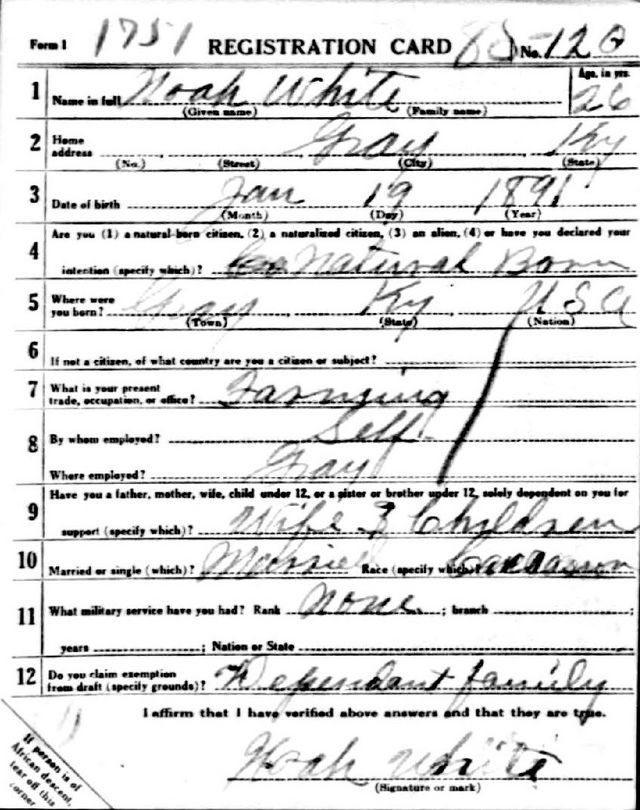 Form 1 1751 REGISTRATION CARD No. 120
1 Name in full Noah White Age, in yrs. 26
(Given name) (Family name)
2 Home address Gray Ky
(No.) (Street) (City) (State)
3 Date of birth Jan 19 1891
(Month) (Day) (Year)
4 Are you (1) a natural-born citizen, (2) a naturalized citizen, (3) an alien, (4) or have you declared your
intention (specify which)? Natural Born
5 Where were you born? Gray Ky USA
(Town) (State) (Nation)
6 If not a citizen, of what country are you a citizen or subject?
7 What is your present trade, occupation, or office? Farming
8 By whom employed? Self
Where employed? Gray
9 Have you a father, mother, wife, child under 12, or a sister or brother under 12, solely dependent on you for
support (specify which)? Wife & Children
10 Married or single (which)? Married Race (specify which)?
11 What military service have you had? Rank none ; branch ;
years ; Nation or State
12 Do you claim exemption from draft (specify grounds)? Dependant family
I affirm that I have verified above answers and that they are true.
Noah White
(Signature or mark)
If person is of
African descent,
tear off this
corner